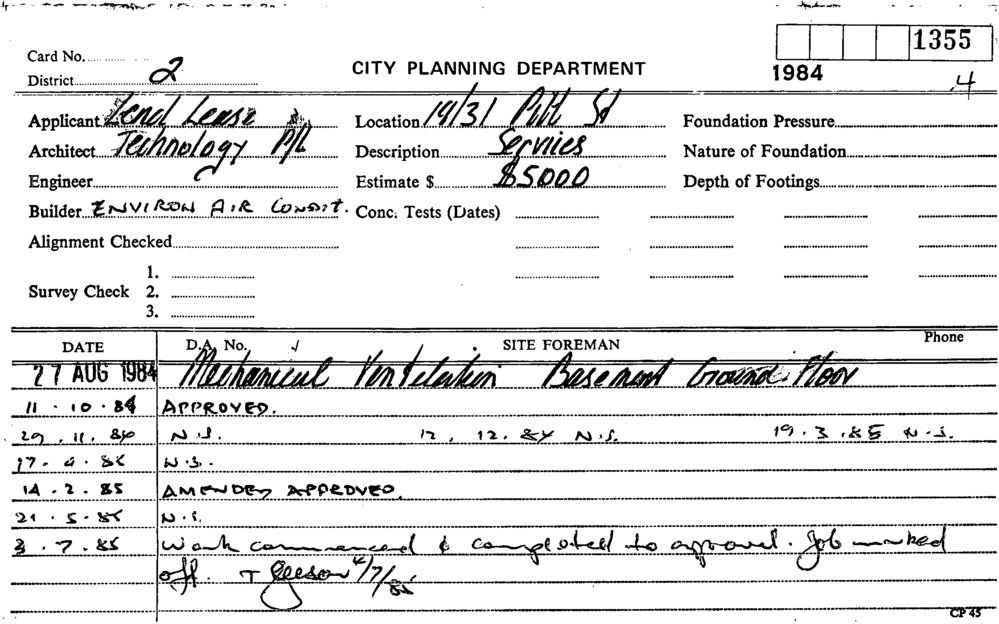 1355
Card No.
CITY PLANNING DEPARTMENT
1984
District 2
4
Applicant Lend Lease
Location 19/31 Pitt St
Foundation Pressure
Architect Technology P/L
Description Services
Nature of Foundation
Engineer
Estimate $ $5000
Depth of Footings
Builder ENVIRON AIR CONDIT.
Conc. Tests (Dates)
Alignment Checked
1.
Survey Check 2.
3.
DATE D.A. No. SITE FOREMAN Phone
27 AUG 1984 Mechanical Ventilation Basement Ground Floor
11 . 10 . 84 APPROVED.
29 . 11 . 84 N.S. 12 . 12 . 84 N.S. 19 . 3 . 85 N.S.
17 . 4 . 85 N.S.
14 . 2 . 85 AMENDED APPROVED.
21 . 5 . 85 N.S.
3 . 7 . 85 Work commenced & completed to approval. Job marked
off. T Gleeson 4/7/85
CP 45